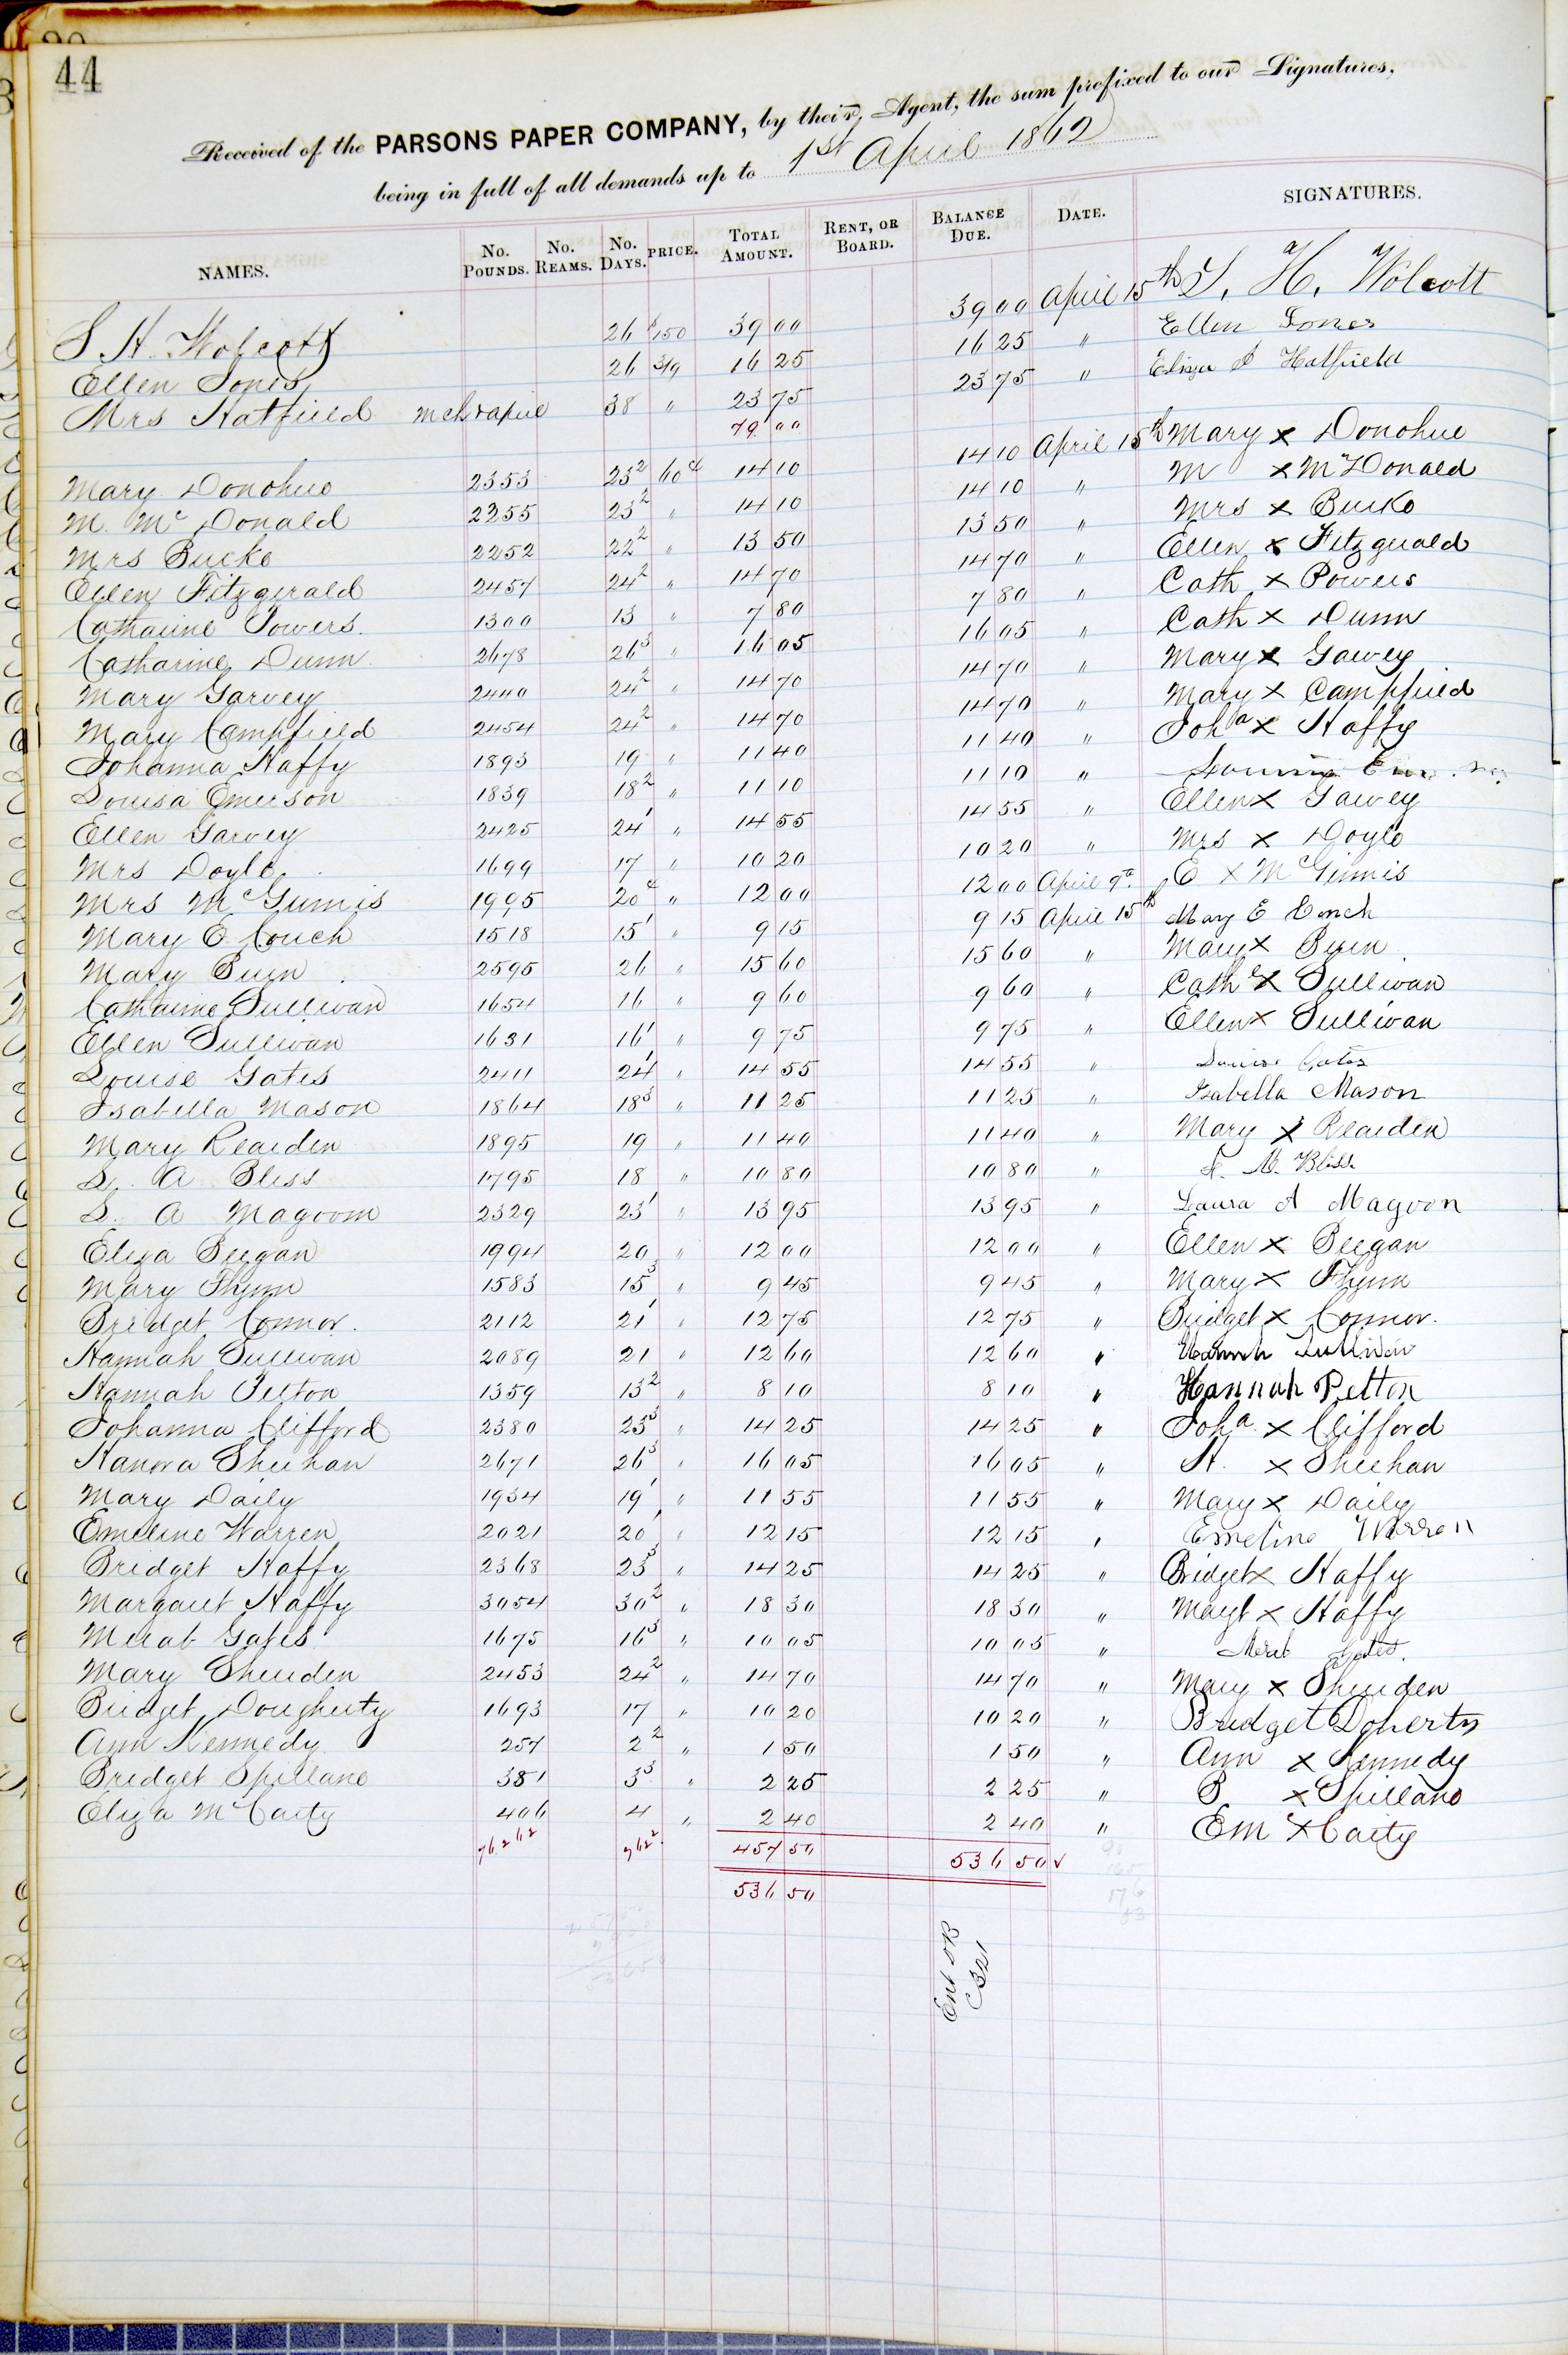 44
Received of the PARSONS PAPER COMPANY, by their Agent, the sum prefixed to our Signatures,
being in full of all demands up to 1st April 1862
NAMES. No. POUNDS. No. REAMS. No. DAYS. PRICE. TOTAL AMOUNT. RENT, OR BOARD. BALANCE DUE. DATE. SIGNATURES.
S. H. Wolcott 26 $1.50 39 00 39 00 April 15th S. H. Wolcott
Ellen Jones 26 16 25 16 25 " Ellen Jones
Mrs Hatfield Mch & April 38 " 23 75 23 75 " Eliza Hatfield
79 00
Mary Donohue 2353 23² 60c 14 10 14 10 April 15th Mary x Donohue
M. McDonald 2355 23² " 14 10 14 10 " M x McDonald
Mrs Burke 2252 22² " 13 50 13 50 " Mrs x Burke
Ellen Fitzgerald 2457 24² " 14 70 14 70 " Ellen x Fitzgerald
Catharine Powers. 1300 13 " 7 80 7 80 " Cath x Powers
Catharine Dunn 2678 26³ " 16 05 16 05 " Cath x Dunn
Mary Garvey 2440 24² " 14 70 14 70 " Mary x Garvey
Mary Campfield 2454 24² " 14 70 14 70 " Mary x Campfield
Johanna Haffy 1893 19 " 11 40 11 40 " Joha x Haffy
Louisa Emerson 1839 18² " 11 10 11 10 "
Ellen Garvey 2425 24¹ " 14 55 14 55 " Ellen x Garvey
Mrs Doyle 1699 17 " 10 20 10 20 " Mrs x Doyle
Mrs McGinnis 1995 20 " 12 00 12 00 April 9th E x McGinnis
Mary E. Couch 1518 15¹ " 9 15 9 15 April 15th Mary E Couch
Mary Burn 2595 26 " 15 60 15 60 " Mary x Burn
Catharine Sullivan 1654 16 " 9 60 9 60 " Cathe x Sullivan
Ellen Sullivan 1631 16¹ " 9 75 9 75 " Ellen x Sullivan
Louise Gates 2411 24¹ " 14 55 14 55 " Louise Gates
Isabella Mason 1864 18³ " 11 25 11 25 " Isabella Mason
Mary Rearden 1895 19 " 11 40 11 40 " Mary x Rearden
L. A Bliss 1795 18 " 10 80 10 80 " Bliss
L. A Magoom 2329 23¹ " 13 95 13 95 " Laura A Magoon
Eliza Beegan 1994 20 " 12 00 12 00 " Ellen x Beegan
Mary Flynn 1583 15³ " 9 45 9 45 " Mary x Flynn
Bridget Connor. 2112 21¹ " 12 75 12 75 " Bridget x Connor.
Hannah Sullivan 2089 21 " 12 60 12 60 " Hannah Sullivan
Hannah Pelton 1359 13² " 8 10 8 10 " Hannah Pelton
Johanna Clifford 2380 23³ " 14 25 14 25 " Joha x Clifford
Hanora Sheehan 2671 26³ " 16 05 16 05 " H. x Sheehan
Mary Daily 1934 19¹ " 11 55 11 55 " Mary x Daily
Emeline Warren 2021 20¹ " 12 15 12 15 " Emeline Warren
Bridget Haffy 2368 23³ " 14 25 14 25 " Bridget x Haffy
Margaret Haffy 3054 30² " 18 30 18 30 " Magt x Haffy
Merab Gates 1675 16³ " 10 05 10 05 " Merab Gates.
Mary Sheriden 2453 24² " 14 70 14 70 " Mary x Sheriden
Bridget Dougherty 1693 17 " 10 20 10 20 " Bridget Doherty
Ann Kennedy 257 2² " 1 50 1 50 " Ann x Kennedy
Bridget Spillane 381 3³ " 2 25 2 25 " B. x Spillane
Eliza McCarty 406 4 " 2 40 2 40 " E Mc x Carty
76262 762² 457 50 536 50 ✓
536 50